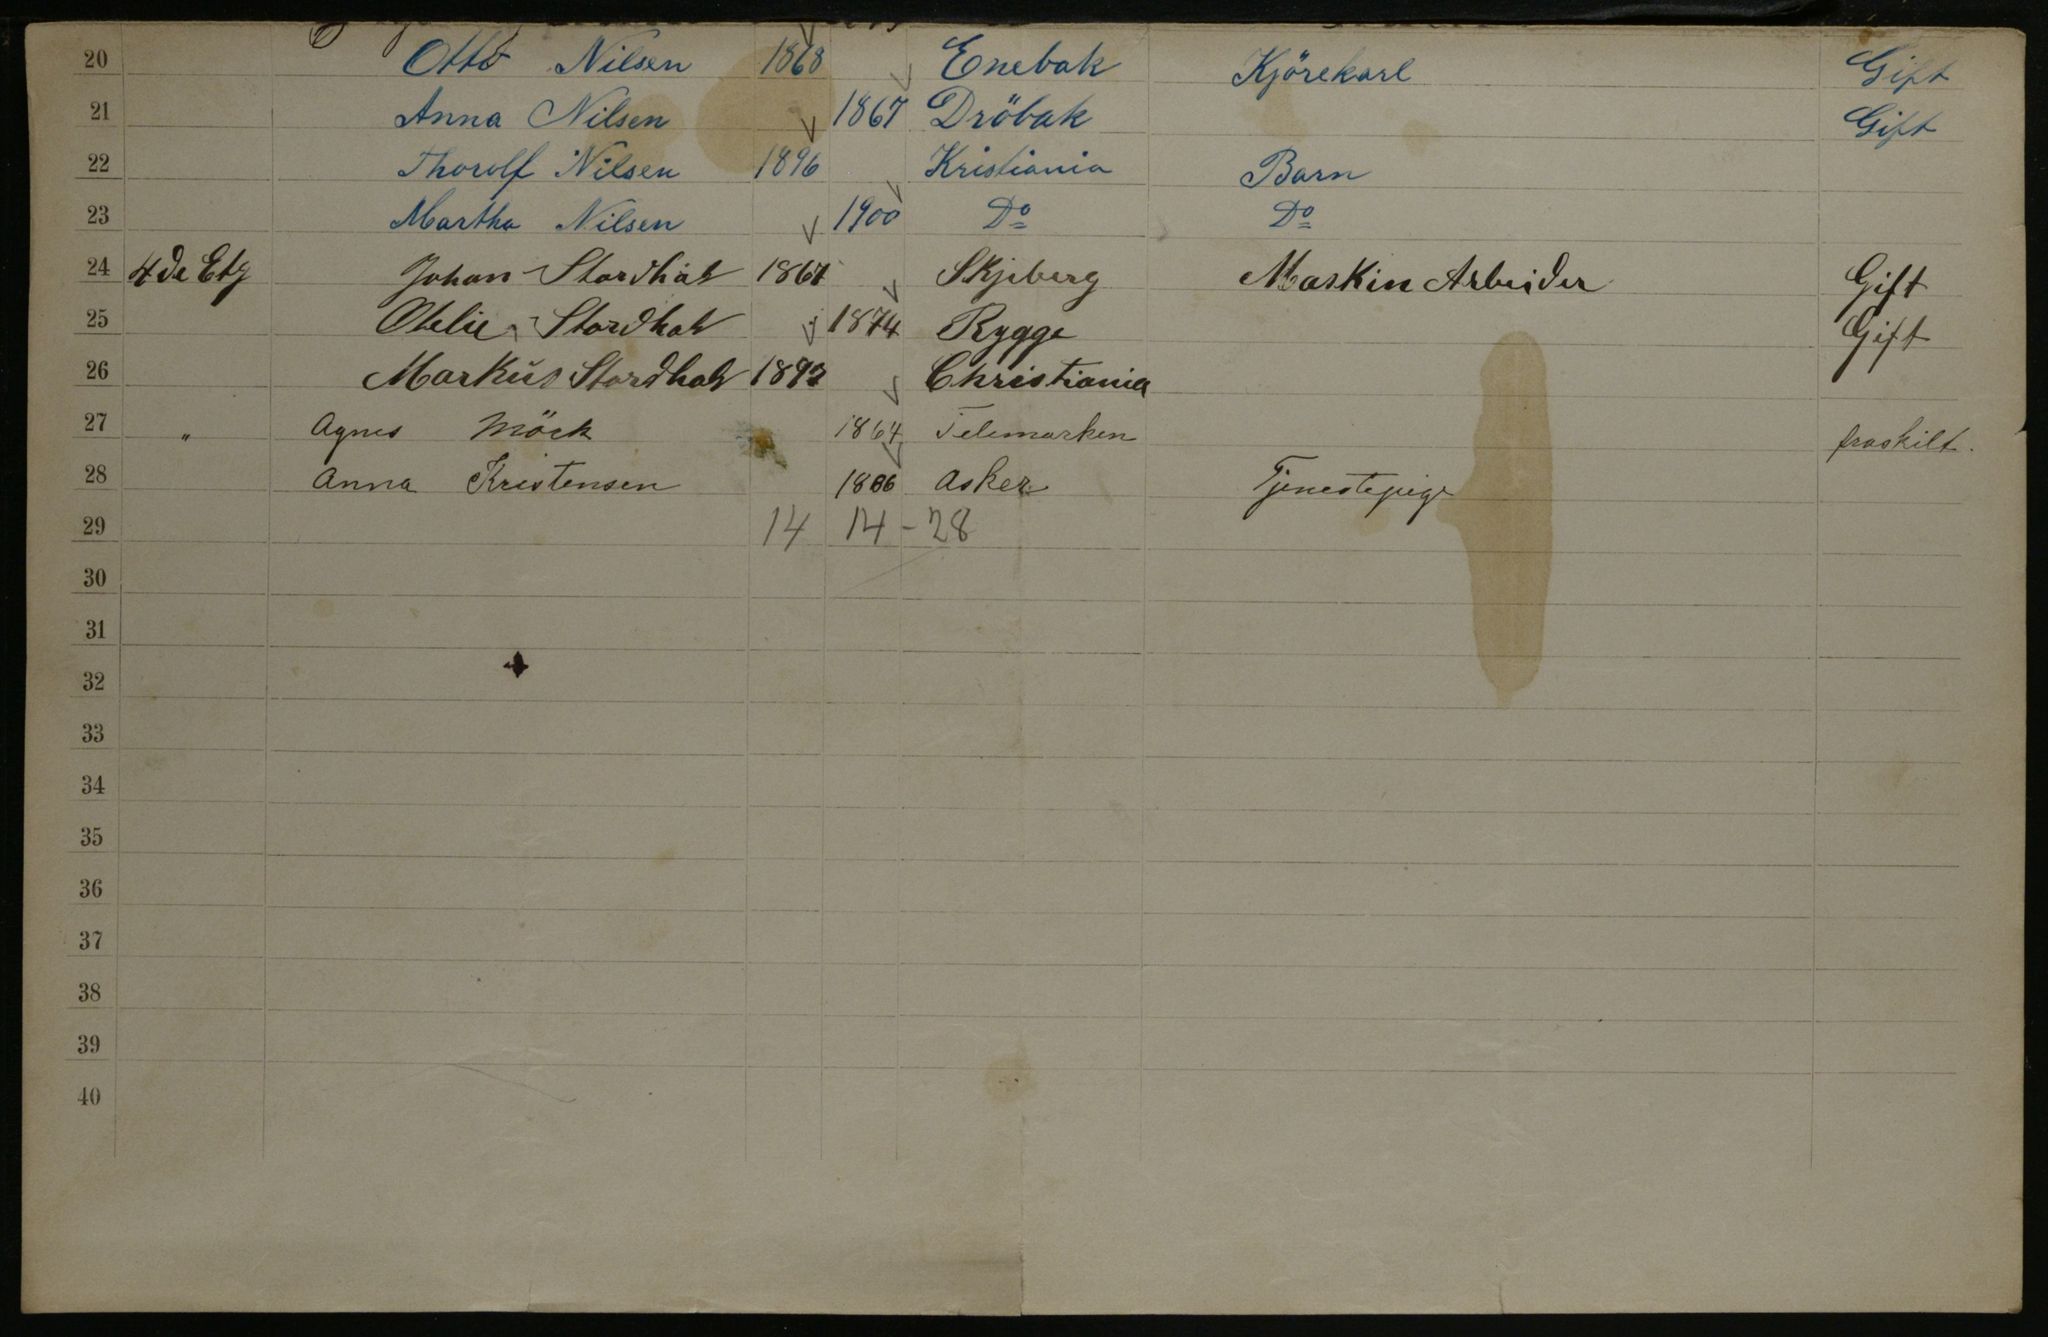 20 Otto Nilsen 1868 Enebak Kjörekarl Gift
21 Anna Nilsen 1867 Dröbak Gift
22 Thorolf Nilsen 1896 Kristiania Barn
23 Martha Nilsen 1900 Do Do
24 4de Etg Johan Stordhat Skjeberg Maskin Arbeider Gift
25 Stordhat 1874 Rygge Gift
26 Markus Stordhat Christiania
27 " Agnes Mörk 1864 Telemarken fraskilt.
28 Anna Kristensen Asker Tjenestepige
29 14 14-28
30
31
32
33
34
35
36
37
38
39
40